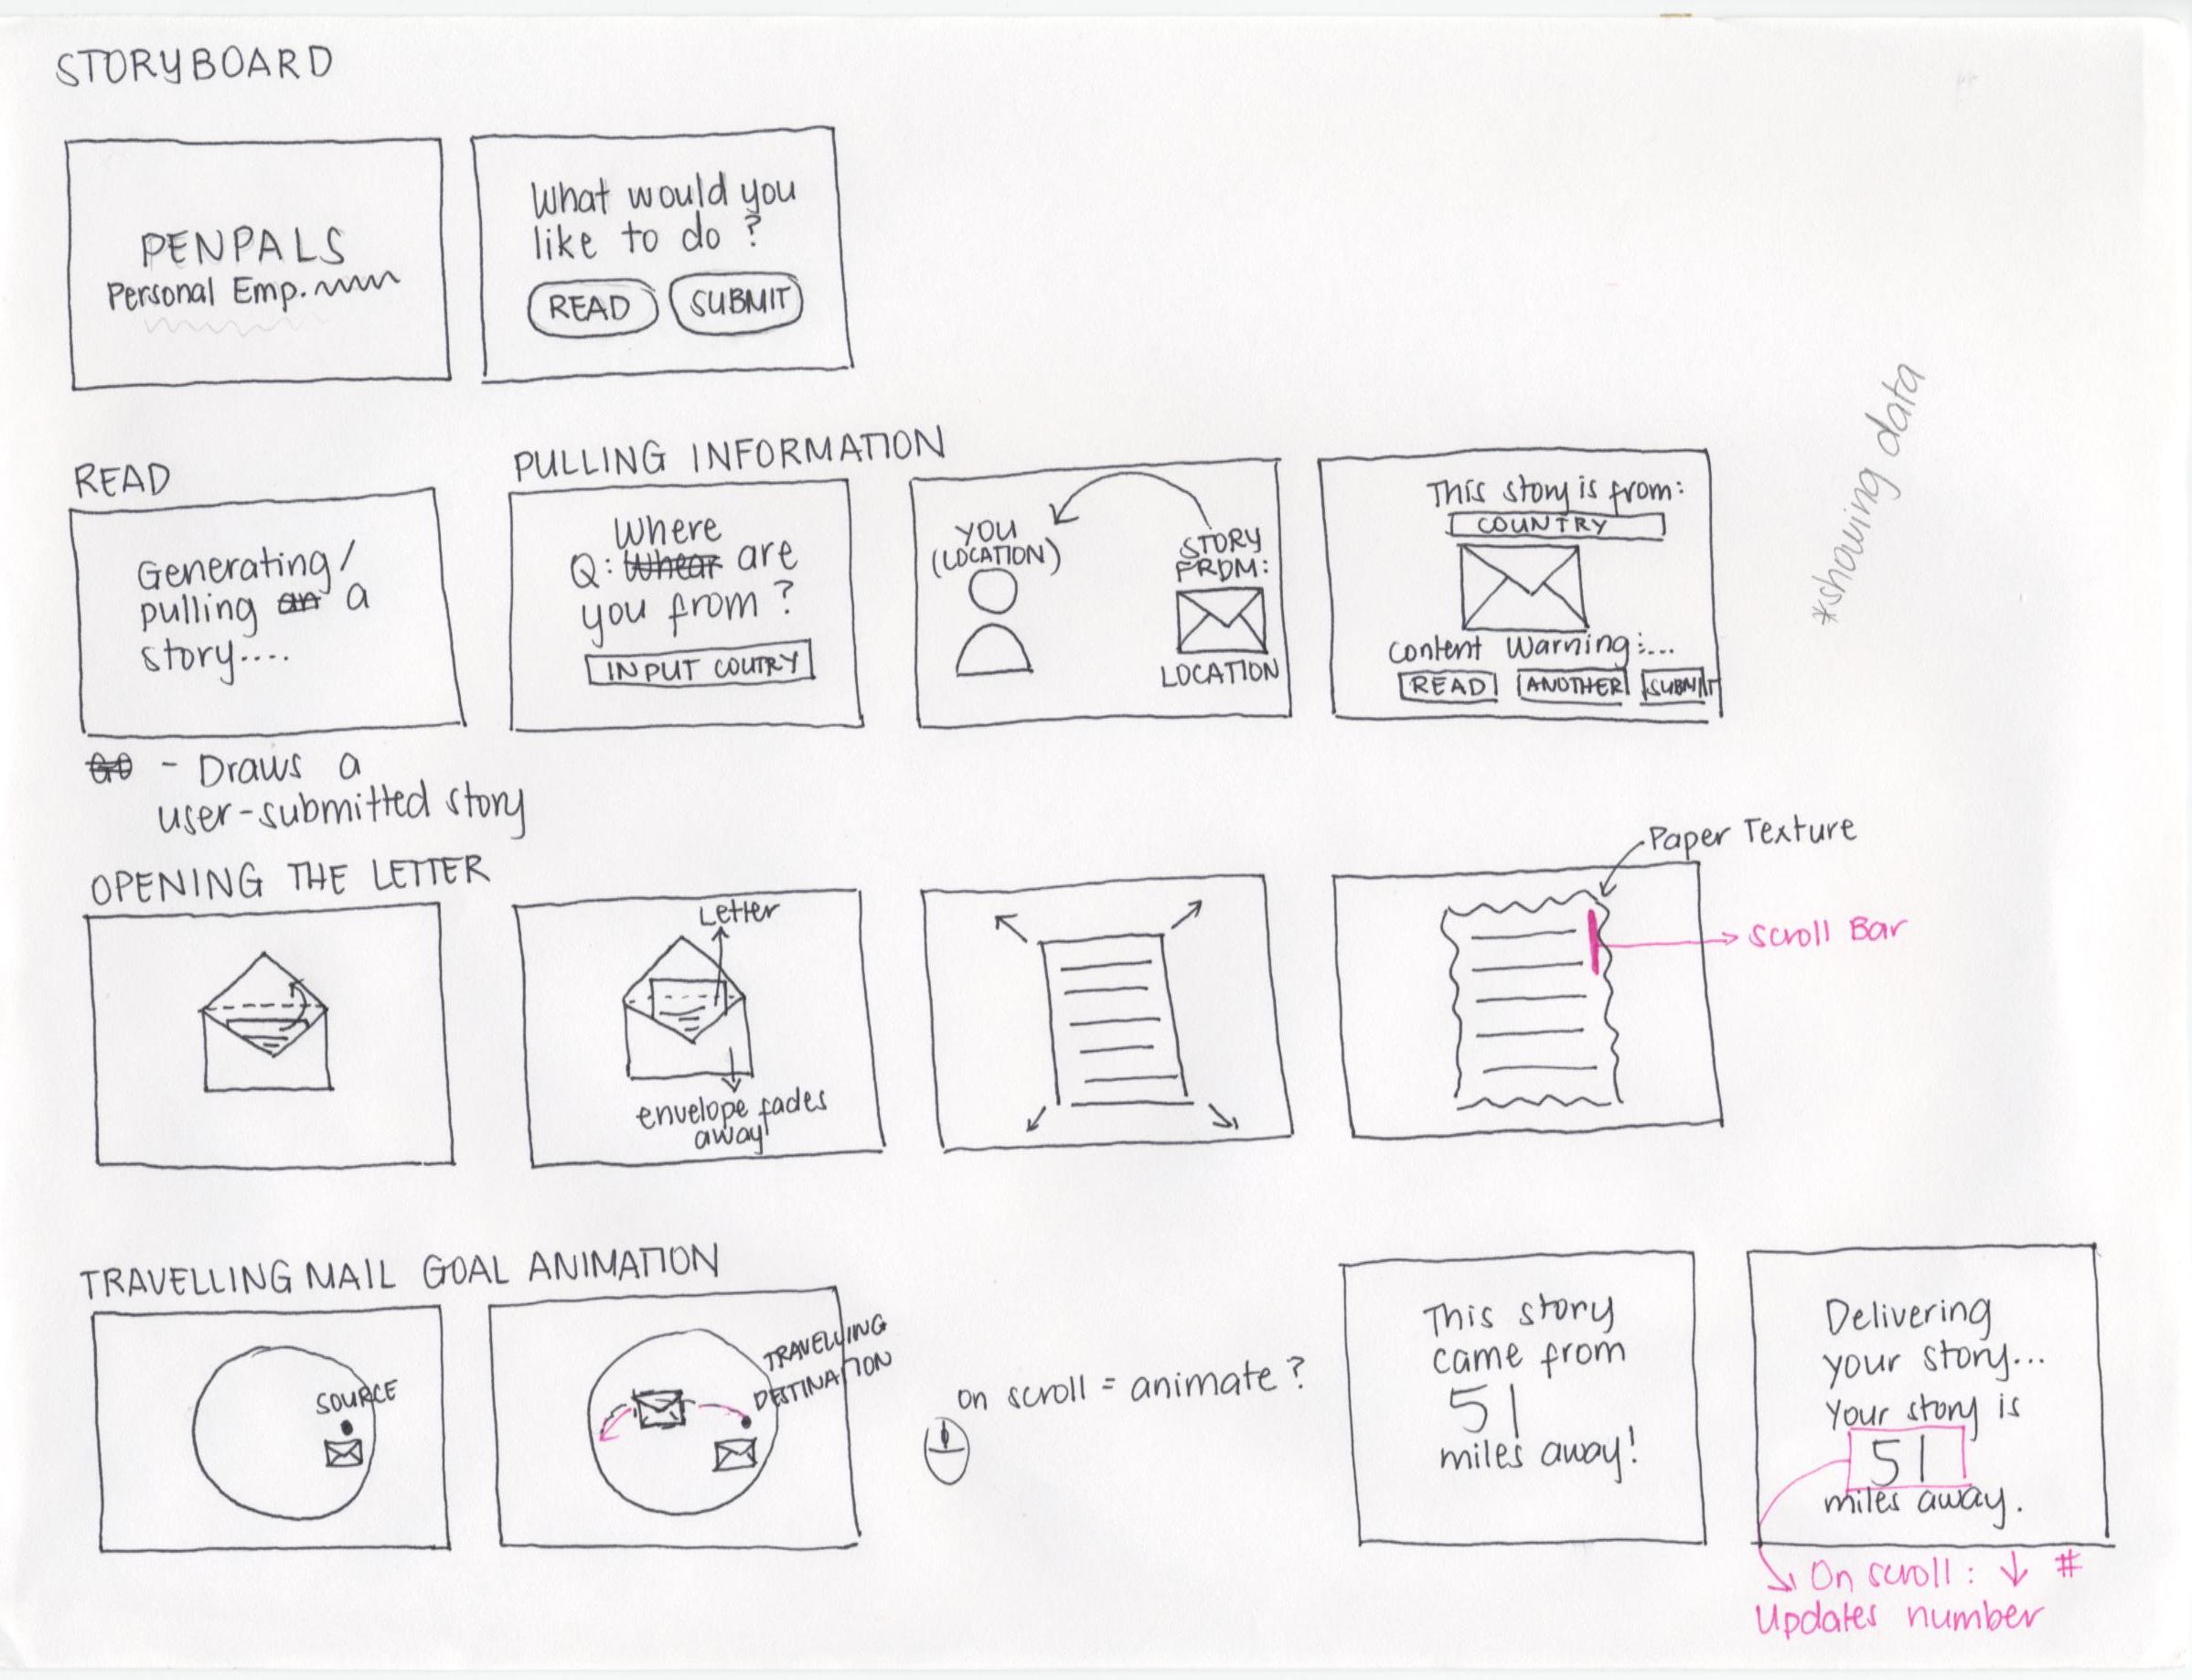 STORYBOARD
PENPALS
Personal Emp.
What would you
like to do ?
READ
SUBMIT
READ
Generating/
pulling an a
story....
- Draws a
user-submitted story
PULLING INFORMATION
Where
Q: Whear are
you from ?
INPUT COUTRY
YOU
(LOCATION)
STORY
FROM:
LOCATION
This story is from:
COUNTRY
Content Warning:...
READ
ANOTHER
SUBMIT
*showing data
OPENING THE LETTER
Letter
envelope fades
away
Paper Texture
Scroll Bar
TRAVELLING MAIL GOAL ANIMATION
SOURCE
TRAVELLING
DESTINATION
on scroll = animate ?
This story
came from
51
miles away!
Delivering
your story...
Your story is
51
miles away.
On scroll: ↓ #
Updates number